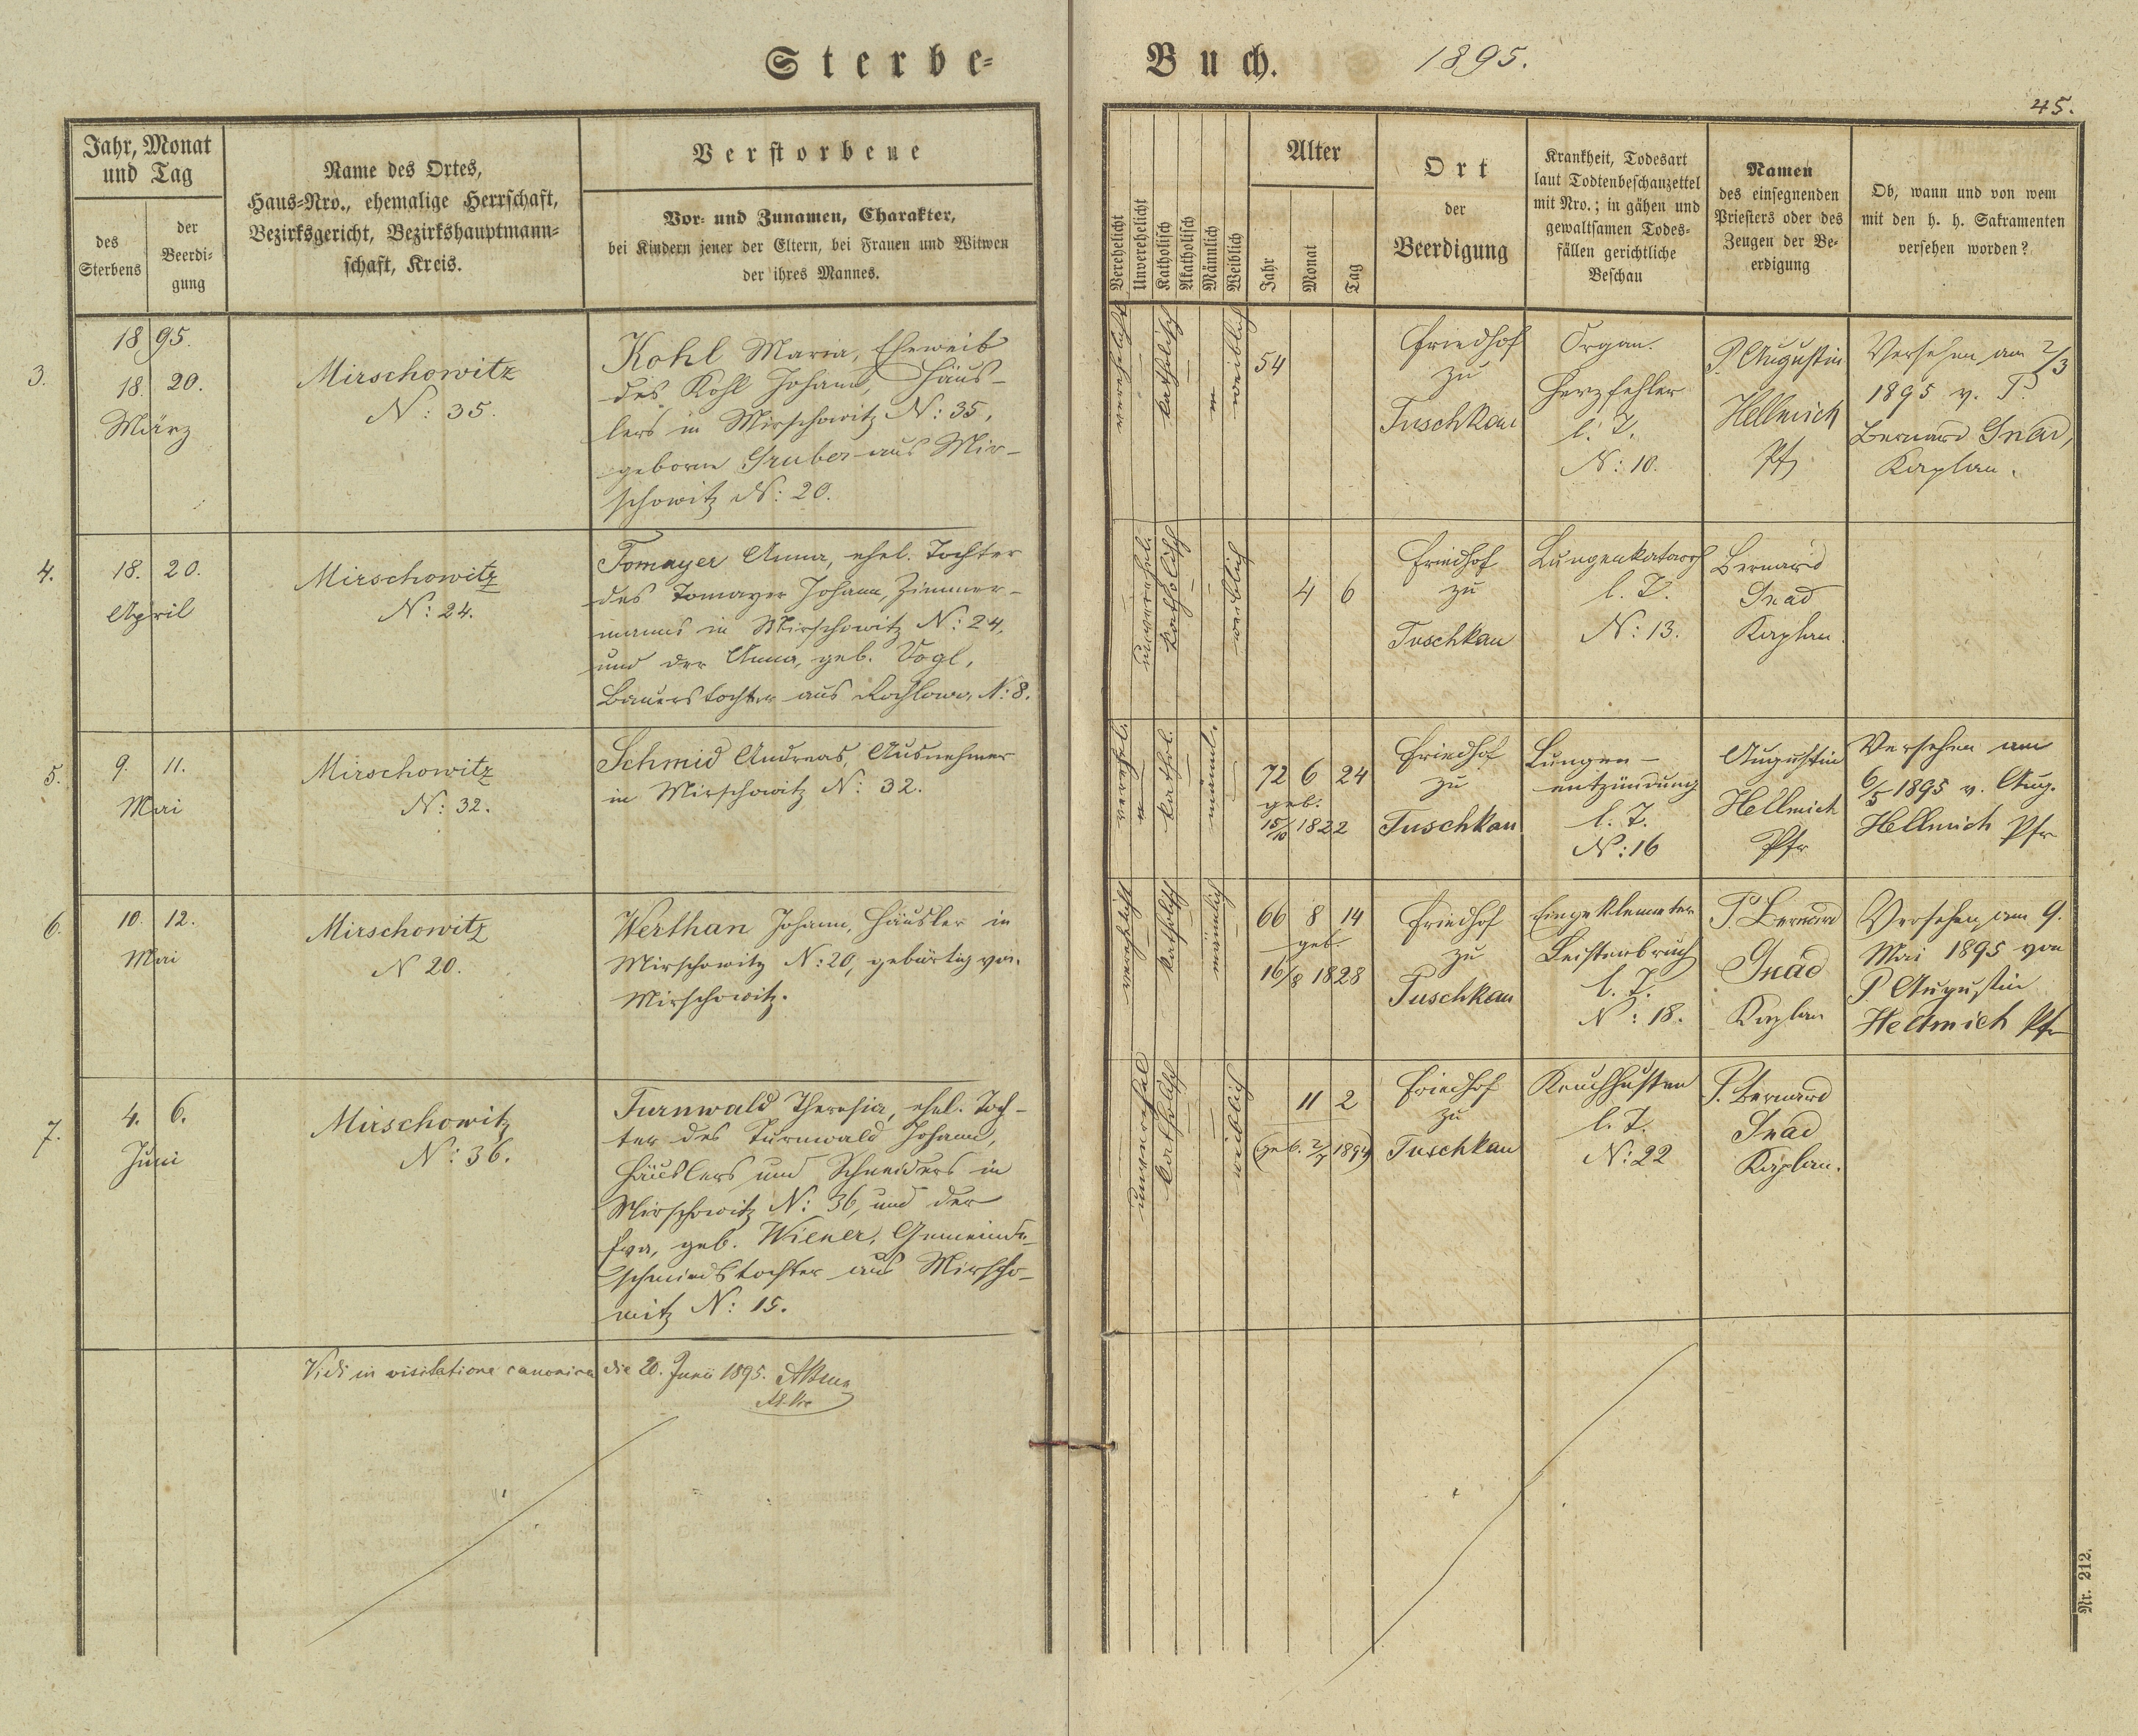 Sterbe-
Buch. 1895.
45.
Jahr, Monat
und Tag
des
Sterbens
der
Beerdi-
gung
Name des Ortes,
Haus-Nro., ehemalige Herrschaft,
Bezirksgericht, Bezirkshauptmann-
schaft, Kreis.
Verstorbene
Vor- und Zunamen, Charakter,
bei Kindern jener der Eltern, bei Frauen und Witwen
der ihres Mannes.
Verehelicht
Unverehelicht
Katholisch
Akatholisch
Männlich
Weiblich
Alter
Jahr
Monat
Tag
Ort
der
Beerdigung
Krankheit, Todesart
laut Todtenbeschauzettel
mit Nro.; in gähen und
gewaltsamen Todes-
fällen gerichtliche
Beschau
Namen
des einsegnenden
Priesters oder des
Zeugen der Be-
erdigung
Ob, wann und von wem
mit den h. h. Sakramenten
versehen worden?
3.
1895.
18. 20.
März
Mirschowitz
N: 35.
Kohl Maria, Eheweib
des Kohl Johann, Häus-
lers in Mirschowitz N: 35,
geborne Gruber aus Mir-
schowitz N: 20.
verehelicht
katholisch
weiblich
54
Friedhof
zu
Tuschkau
Organ.
Herzfehler
l. Z.
N: 10.
P. Augustin
Hellmich
Pfr
Versehen am 2/3
1895 v. P.
Bernard Gnad,
Kaplan.
4.
18. 20.
April
Mirschowitz
N: 24.
Tomayer Anna, ehel. Tochter
des Tomayer Johann, Zimmer-
manns in Mirschowitz N: 24,
und der Anna, geb. Vogl,
Bauerstochter aus Rochlowa N: 8.
unverehel.
katholisch
weiblich
4 6
Friedhof
zu
Tuschkau
Lungenkatarrh
l. Z.
N: 13.
Bernard
Gnad
Kaplan.
5.
9. 11.
Mai
Mirschowitz
N: 32.
Schmid Andreas, Ausnehmer
in Mirschowitz N: 32.
verehel.
kathol.
männl.
72 6 24
geb.
15/10 1822
Friedhof
zu
Tuschkau
Lungen-
entzündung
l. Z.
N: 16
Augustin
Hellmich
Pfr
Versehen am
6/5 1895 v. Aug.
Hellmich Pfr
6.
10. 12.
Mai
Mirschowitz
N 20.
Werthan Johann, Häusler in
Mirschowitz N: 20, gebürtig von
Mirschowitz.
verehelicht
katholisch
männlich
66 8 14
geb.
16/8 1828
Friedhof
zu
Tuschkau
Eingeklemmter
Leistenbruch
l. Z.
N: 18.
P. Bernard
Gnad
Kaplan
Versehen am 9.
Mai 1895 von
P. Augustin
Hellmich Pfr
7.
4. 6.
Juni
Mirschowitz
N: 36.
Turnwald Theresia, ehel. Toch-
ter des Turnwald Johann,
Häuslers und Schneiders in
Mirschowitz N: 36, und der
Eva, geb. Wiener, Gemeinde-
schmiedstochter aus Mirscho-
witz N: 15.
unverehel
katholisch
weiblich
11 2
(geb. 2/7 1894)
Friedhof
zu
Tuschkau
Keuchhusten
l. Z.
N: 22
P. Bernard
Gnad
Kaplan.
Vidi in visitatione canonica die 20. Junii 1895.
Nr. 212.